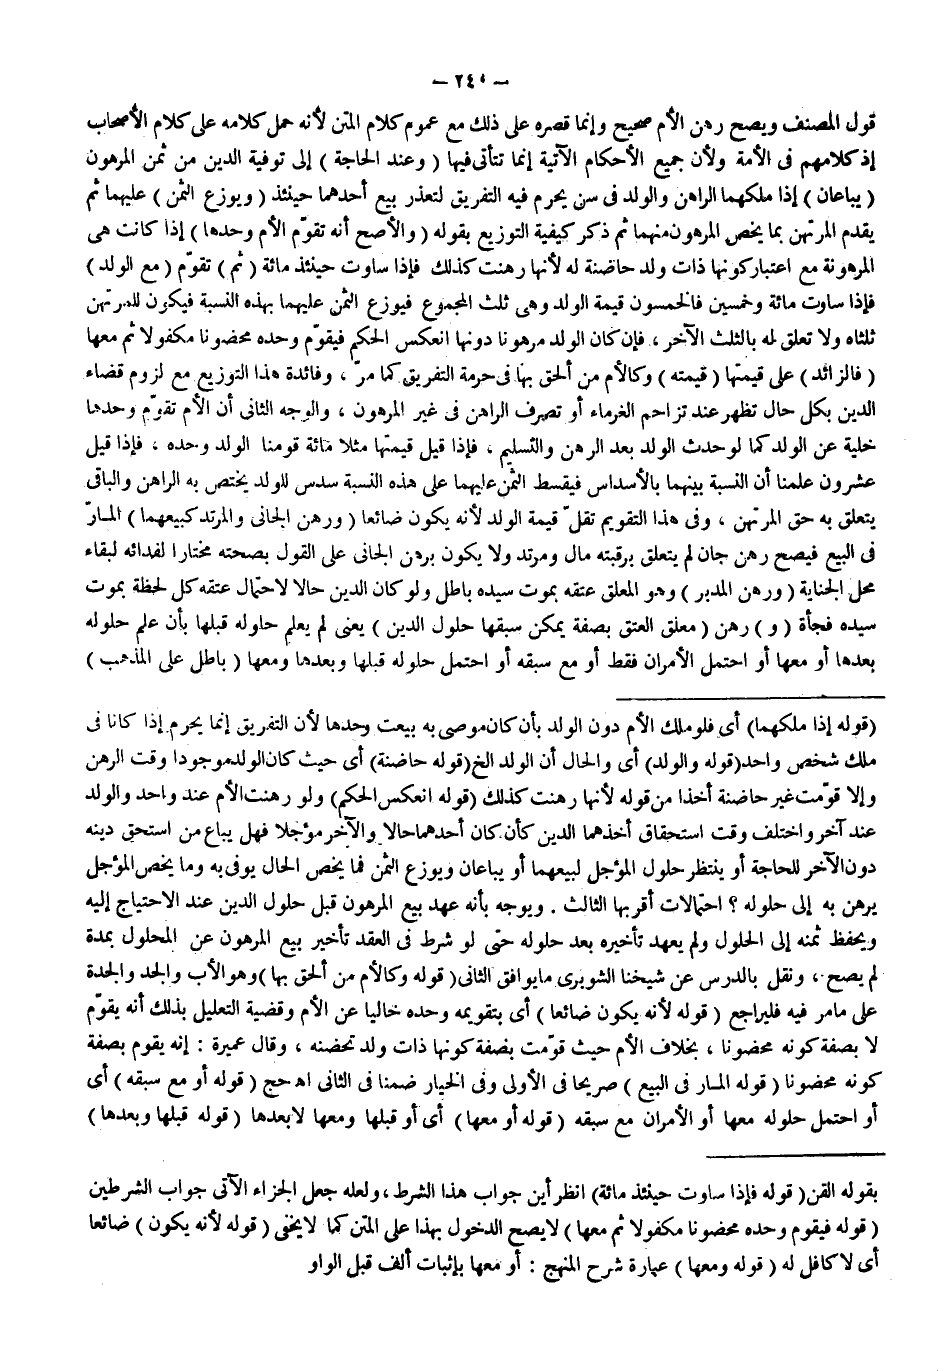 — ٢٤٠ —
قول المصنف ويصح رهن الأم صحيح وإنما قصره على ذلك مع عموم كلام المتن لأنه حمل كلامه على كلام الأصحاب
إذ كلامهم فى الأمة ولأن جميع الأحكام الآتية إنما تتأتى فيها ( وعند الحاجة ) إلى توفية الدين من ثمن المرهون
( يباعان ) إذا ملكهما الراهن والولد فى سن يحرم فيه التفريق لتعذر بيع أحدهما حينئذ ( ويوزع الثمن ) عليهما ثم
يقدم المرتهن بما يخص المرهون منهما ثم ذكر كيفية التوزيع بقوله ( والأصح أنه تقوّم الأم وحدها ) إذا كانت هى
المرهونة مع اعتبار كونها ذات ولد حاضنة له لأنها رهنت كذلك فإذا ساوت حينئذ مائة ( ثم ) تقوّم ( مع الولد )
فإذا ساوت مائة وخمسين فالخمسون قيمة الولد وهى ثلث المجموع فيوزع الثمن عليهما بهذه النسبة فيكون للمرتهن
ثلثاه ولا تعلق له بالثلث الآخر ، فإن كان الولد مرهونا دونها انعكس الحكم فيقوّم وحده محضونا مكفولا ثم معها
( فالزائد ) على قيمتها ( قيمته ) وكالأم من ألحق بها فى حرمة التفريق كما مرّ ، وفائدة هذا التوزيع مع لزوم قضاء
الدين بكل حال تظهر عند تزاحم الغرماء أو تصرف الراهن فى غير المرهون ، والوجه الثانى أن الأم تقوّم وحدها
خلية عن الولد كما لو حدث الولد بعد الرهن والتسليم ، فإذا قيل قيمتها مثلا مائة قومنا الولد وحده ، فإذا قيل
عشرون علمنا أن النسبة بينهما بالأسداس فيقسط الثمن عليهما على هذه النسبة سدس للولد يختص به الراهن والباقى
يتعلق به حق المرتهن ، وفى هذا التقويم تقلّ قيمة الولد لأنه يكون ضائعا ( ورهن الجانى والمرتد كبيعهما ) المارّ
فى البيع فيصح رهن جان لم يتعلق برقبته مال ومرتد ولا يكون برهن الجانى على القول بصحته مختارا لفدائه لبقاء
محل الجناية ( ورهن المدبر ) وهو المعلق عتقه بموت سيده باطل ولو كان الدين حالا لاحتمال عتقه كل لحظة بموت
سيده فجأة ( و ) رهن ( معلق العتق بصفة يمكن سبقها حلول الدين ) يعنى لم يعلم حلوله قبلها بأن علم حلوله
بعدها أو معها أو احتمل الأمران فقط أو مع سبقه أو احتمل حلوله قبلها وبعدها ومعها ( باطل على المذهب )
(قوله إذا ملكهما) أى فلو ملك الأم دون الولد بأن كان موصى به بيعت وحدها لأن التفريق إنما يحرم إذا كانا فى
ملك شخص واحد(قوله والولد) أى والحال أن الولد الخ(قوله حاضنة) أى حيث كان الولد موجودا وقت الرهن
وإلا قوّمت غير حاضنة أخذا من قوله لأنها رهنت كذلك (قوله انعكس الحكم) ولو رهنت الأم عند واحد والولد
عند آخر واختلف وقت استحقاق أخذهما الدين كأن كان أحدهما حالا والآخر مؤجلا فهل يباع من استحق دينه
دون الآخر للحاجة أو ينتظر حلول المؤجل لبيعهما أو يباعان ويوزع الثمن فما يخص الحال يوفى به وما يخص المؤجل
يرهن به إلى حلوله ؟ احتمالات أقربها الثالث . ويوجه بأنه عهد بيع المرهون قبل حلول الدين عند الاحتياج إليه
ويحفظ ثمنه إلى الحلول ولم يعهد تأخيره بعد حلوله حتى لو شرط فى العقد تأخير بيع المرهون عن المحلول بمدة
لم يصح ، ونقل بالدرس عن شيخنا الشوبرى مايوافق الثانى( قوله وكالأم من ألحق بها )وهو الأب والجد والجدة
على مامر فيه فليراجع ( قوله لأنه يكون ضائعا ) أى بتقويمه وحده خاليا عن الأم وقضية التعليل بذلك أنه يقوّم
لا بصفة كونه محضونا ، بخلاف الأم حيث قوّمت بصفة كونها ذات ولد تحضنه ، وقال عميرة : إنه يقوم بصفة
كونه محضونا ( قوله المار فى البيع ) صريحا فى الأولى وفى الخيار ضمنا فى الثانى اه حج ( قوله أو مع سبقه ) أى
أو احتمل حلوله معها أو الأمران مع سبقه ( قوله أو معها ) أى أو قبلها ومعها لابعدها ( قوله قبلها وبعدها )
بقوله القن( قوله فإذا ساوت حينئذ مائة) انظر أين جواب هذا الشرط ، ولعله جعل الجزاء الآتى جواب الشرطين
( قوله فيقوم وحده محضونا مكفولا ثم معها ) لايصح الدخول بهذا على المتن كما لايخفى ( قوله لأنه يكون ) ضائعا
أى لا كافل له ( قوله ومعها ) عبارة شرح المنهج : أو معها بإثبات ألف قبل الواو